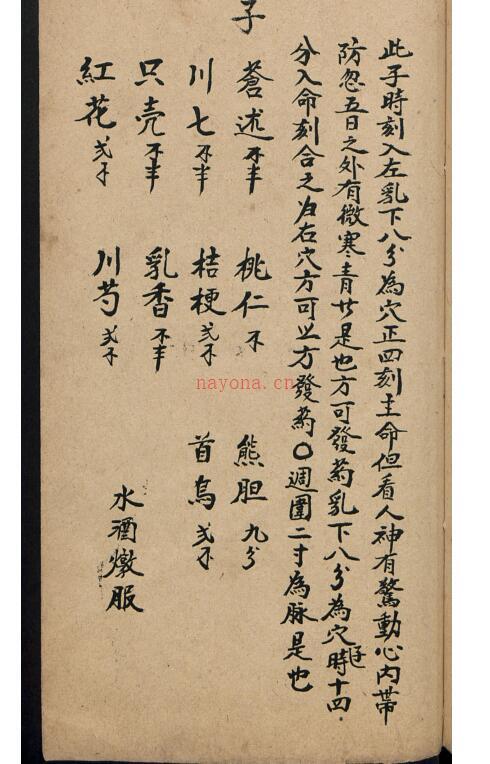 子
此子時刻入左乳下八分為穴正四刻主命但看人神有驚動心內帯
防忽五日之外有微寒青廿是也方可發药乳下八分為穴子時十四
分入命刻合之为右穴方可以方發药〇週圍二寸為脉是也
蒼述不半 桃仁不 熊胆九分
川七不半 桔梗弍不 首烏弍不
只壳不半 乳香不半
紅花弍不 川芍弍不
水酒燉服
nayona.cn